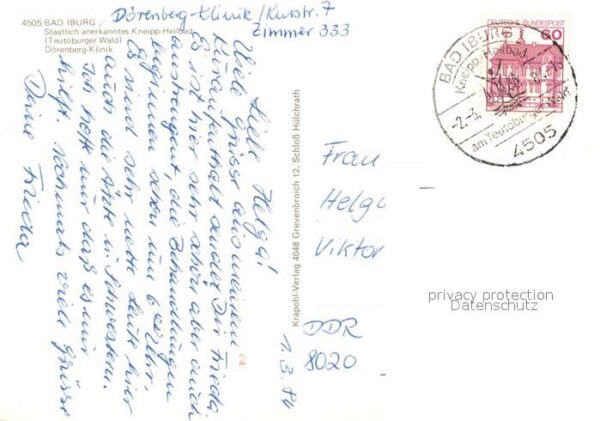 4505 BAD IBURG
Staatlich anerkanntes Kneipp-Heilbad
(Teutoburger Wald)
Dörenberg-Klinik
Dörenberg-Klinik/Kurstr. 7
Zimmer 333
Liebe Helga!
Viele Grüsse aus meinem
Kuraufenthalt sendet Dir Frieda.
Es ist hier sehr schön aber auch
anstrengend, die Behandlungen
beginnen schon um 6 Uhr.
Es sind sehr nette Leute hier
auch die Ärzte u. Schwestern.
Ich hoffe nur daß es mir
hilft. Nochmals viele Grüsse
Deine Frieda
1.3.84
Krapohl-Verlag 4048 Grevenbroich 12, Schloß Hülchrath
DEUTSCHE BUNDESPOST
60
BAD IBURG 1
Kneipp-Heilbad
-2.-3.
am Teutoburger Wald
4505
Frau
Helga
Viktor
DDR
8020
privacy protection
Datenschutz